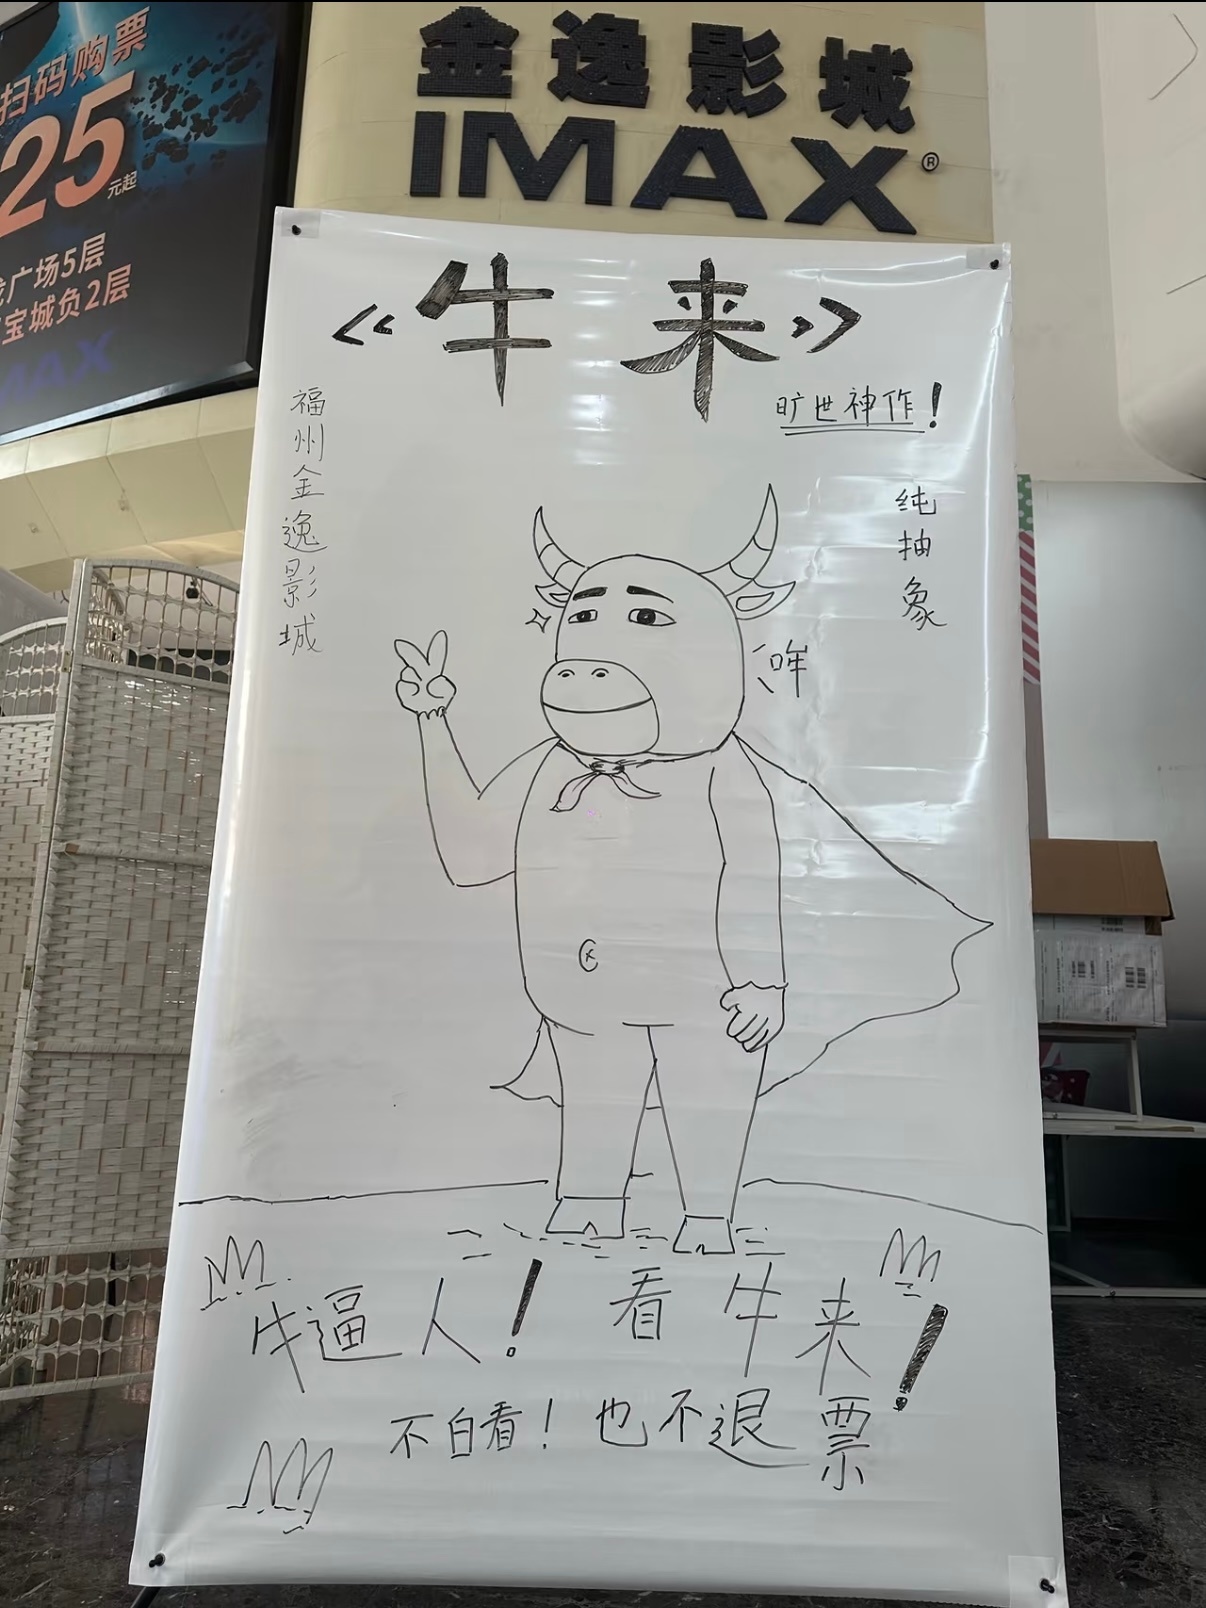 扫码购票
25元起
广场5层
宝城负2层
MAX
金逸影城
IMAX®
《牛来》
旷世神作！
福州金逸影城
纯抽象
哞
牛逼人！看牛来！
不白看！也不退票